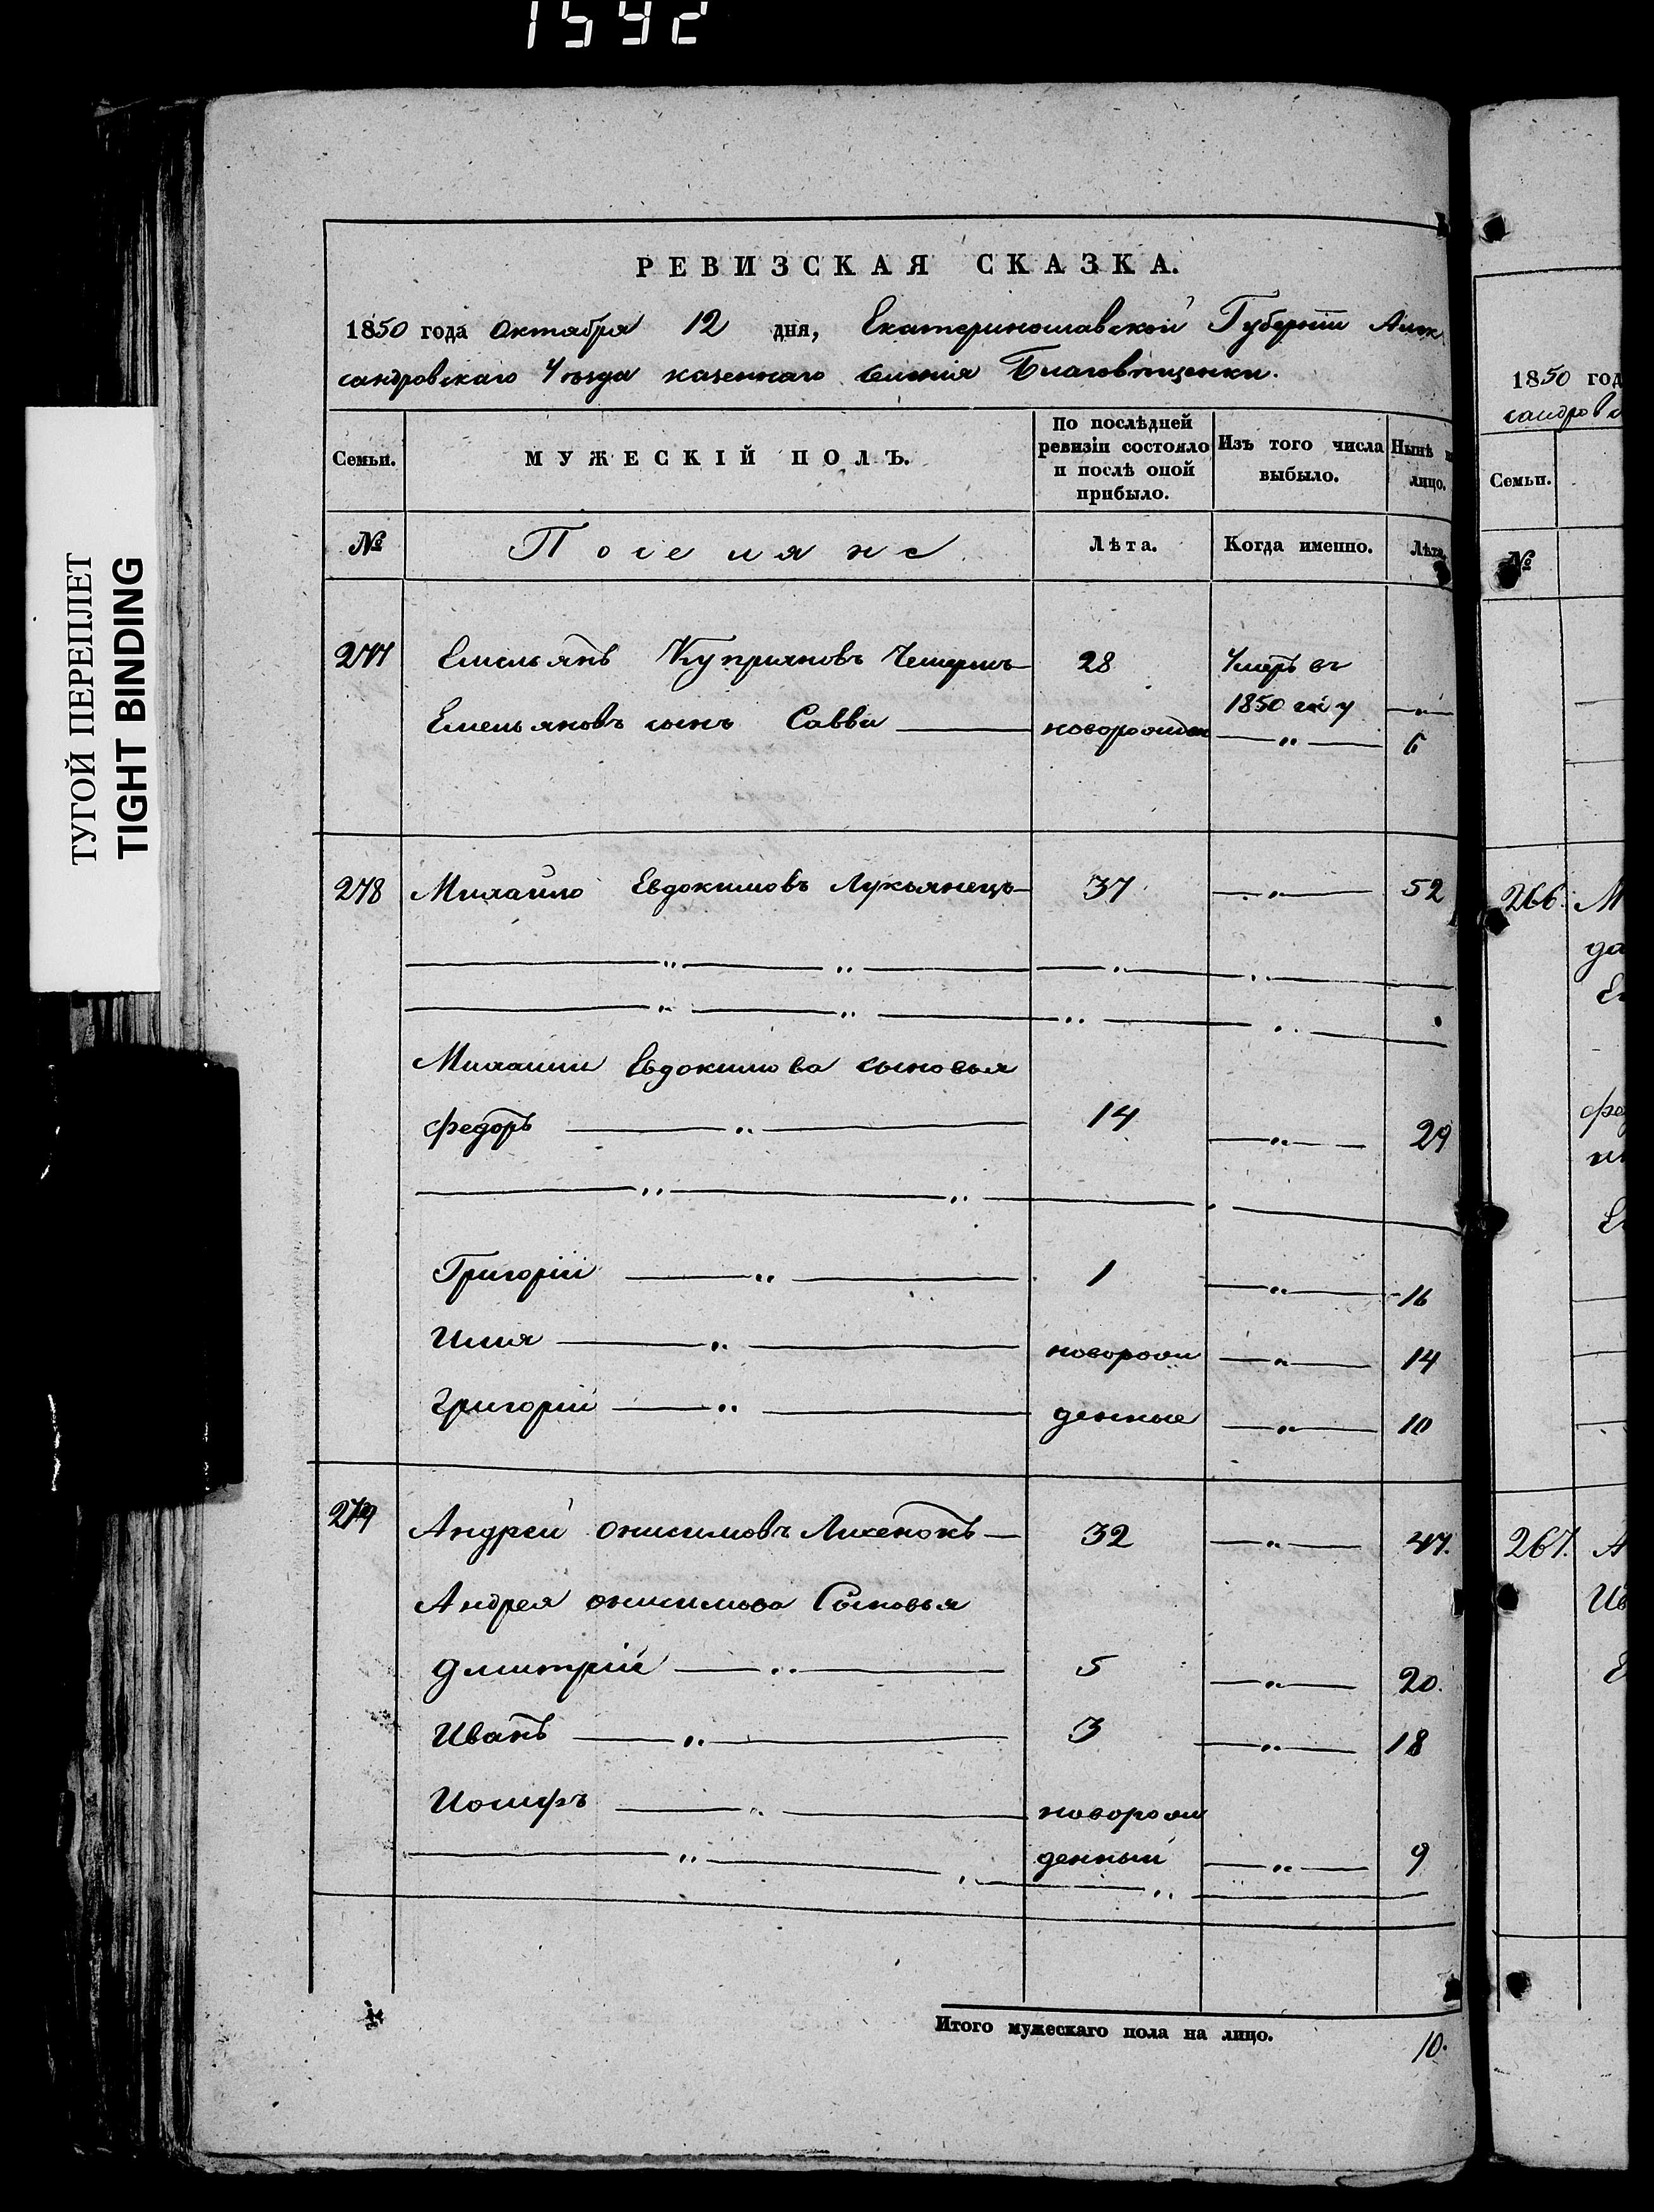 1592
ТУГОЙ ПЕРЕПЛЕТ
TIGHT BINDING
РЕВИЗСКАЯ СКАЗКА.
1850 года Октября 12 дня, Екатеринославской Губерніи Алек
сандровскаго Уѣзда казеннаго селенія Благовѣщенки.
Семьи. МУЖЕСКІЙ ПОЛЪ. По послѣдней ревизіи состояло и послѣ оной прибыло. Изъ того числа выбыло. Нынѣ н лицо.
№ Поселяне Лѣта. Когда именно. Лѣта.
277 Емельянъ Куприяновъ 28 Умеръ въ
1850 году — „ —
Емельяновъ сынъ Савва — новорожден — „ — 6
278 Михайло Евдокимовъ Лукьянецъ — 37 — „ — 52
— „ — „ — „ — „ —
— „ — „ — „ — „ —
Михайлы Евдокимова сыновья
Федоръ — „ — 14 — „ — 29
— „ — „ —
Григорій — „ — 1 — „ — 16
Илья — „ — новорож — „ — 14
Григорій — „ — денные — „ — 10
279 Андрей Онисимовъ Лихенокъ — 32 — „ — 47.
Андрея Онисимова Сыновья
Дмитрій — „ — 5 — „ — 20.
Иванъ — „ — 3 — „ — 18
Иосифъ — „ — новорож
— „ — денный — „ — 9
Итого мужескаго пола на лицо. 10.
1850 год
сандров
Семьи.
№
266. М
да
Ем
фед
267. А
Ив